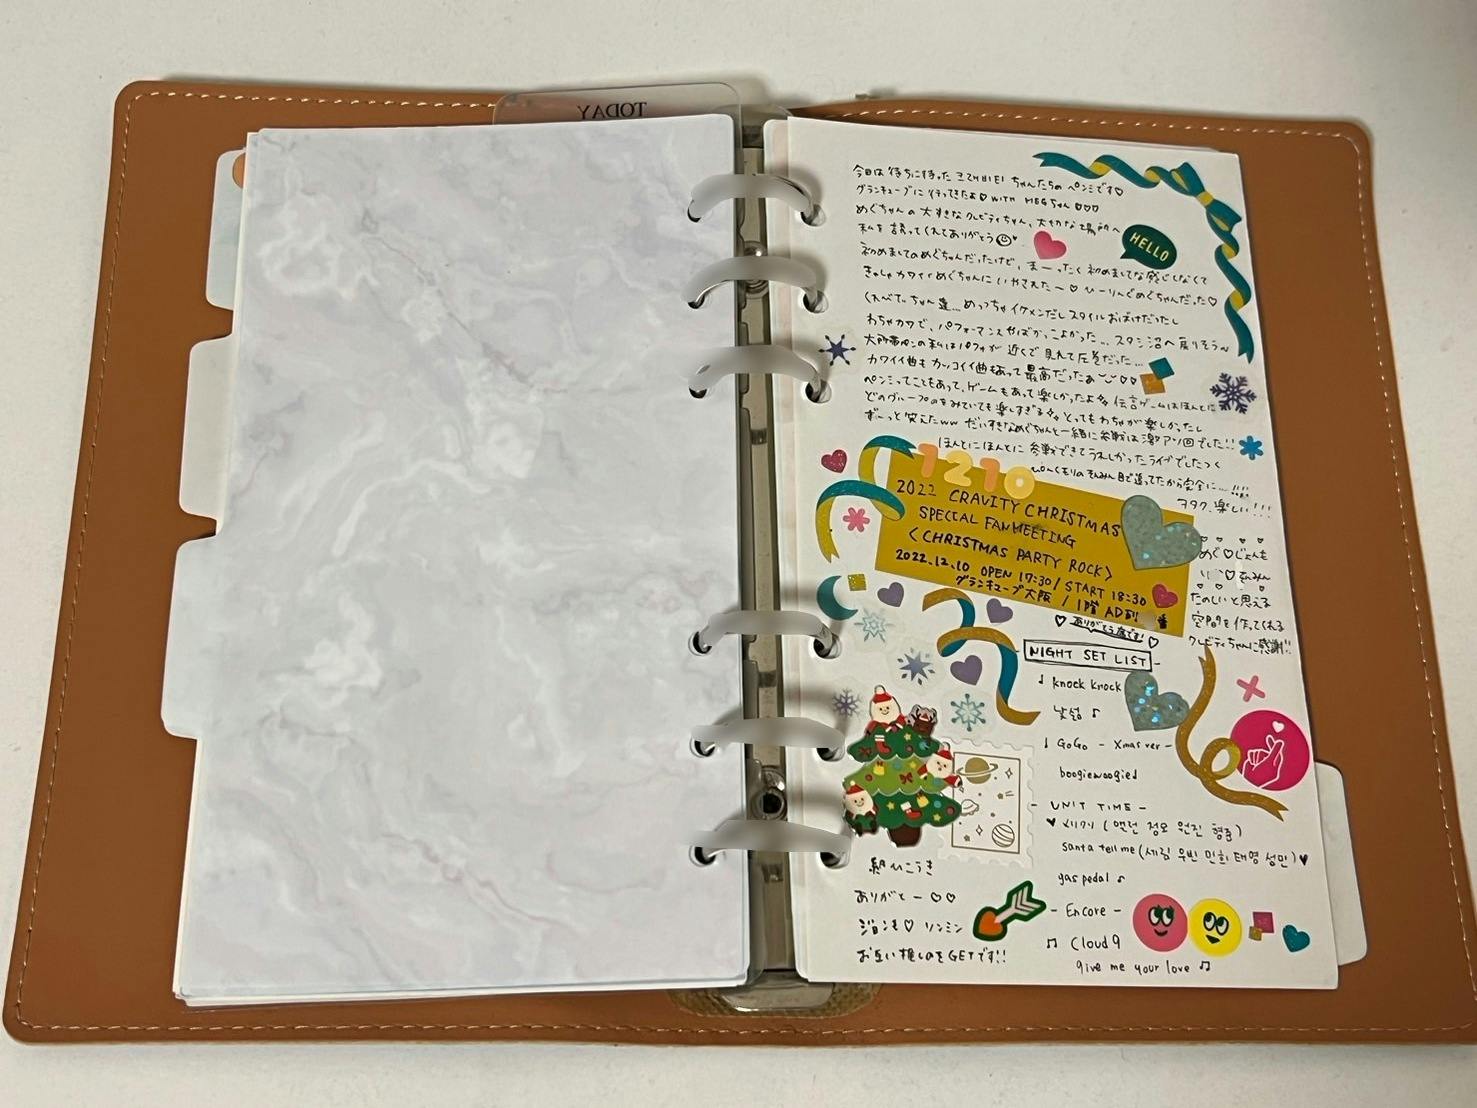 TODAY
今日は待ちに待った크래비티ちゃんたちのペンミです♡
グランキューブに行ってきたよ♡ with MEGちゃん♡♡♡
めぐちゃんの大すきなクレビティちゃん、大切な場所へ
私を誘ってくれてありがとう
HELLO
初めましてのめぐちゃんだったけど、まーったく初めましてな感じしなくて
きゃしゃカワイイめぐちゃんにいやされたー♡ ひーりんぐめぐちゃんだった♡
くれべてぃちゃん達…めっちゃイケメンだしスタイルおばけだったし
わちゃカワで、パフォーマンスやばかっこよかった…スタシ沼へ戻りそうへ
大所帯ペンの私はパフォが近くで見れて圧巻だった…
カワイイ曲もカッコイイ曲もあって最高だったぁ♡♡
ペンミってこともあって、ゲームもあって楽しかったよ 伝言ゲームはほんとに
どのグループのをみていても楽しすぎる とってもわちゃが楽しかったし
ずーっと笑えたww だいすきなめぐちゃんと一緒に参戦は激アツ回でした!!
ほんとにほんとに参戦できてうれしかったライブでしたっ
目で追ってたから完全に…!!!!
ヲタク、楽しい!!!
1210
2022 CRAVITY CHRISTMAS
SPECIAL FANMEETING
<CHRISTMAS PARTY ROCK>
2022.12.10 OPEN 17:30 / START 18:30
グランキューブ大阪 / 1階 AD列 番
めぐ♡じょんも
♡せみん
たのしいと思える
空間を作ってくれる
クレビティちゃんに感謝!!
♡ ありがとう席です! ♡
NIGHT SET LIST
♩ knock knock
낮섦 ♪
♩ GoGo - Xmas ver -
boogiewoogied
- UNIT TIME -
♥ メリクリ (앨런 정모 원진 형준)
santa tell me (세림 우빈 민희 태영 성민) ♥
gas pedal ♪
- Encore -
♫ Cloud 9
give me your love ♫
ありがとー♡♡
ジョンモ♡ソンミン
お互い推しのをGETです!!